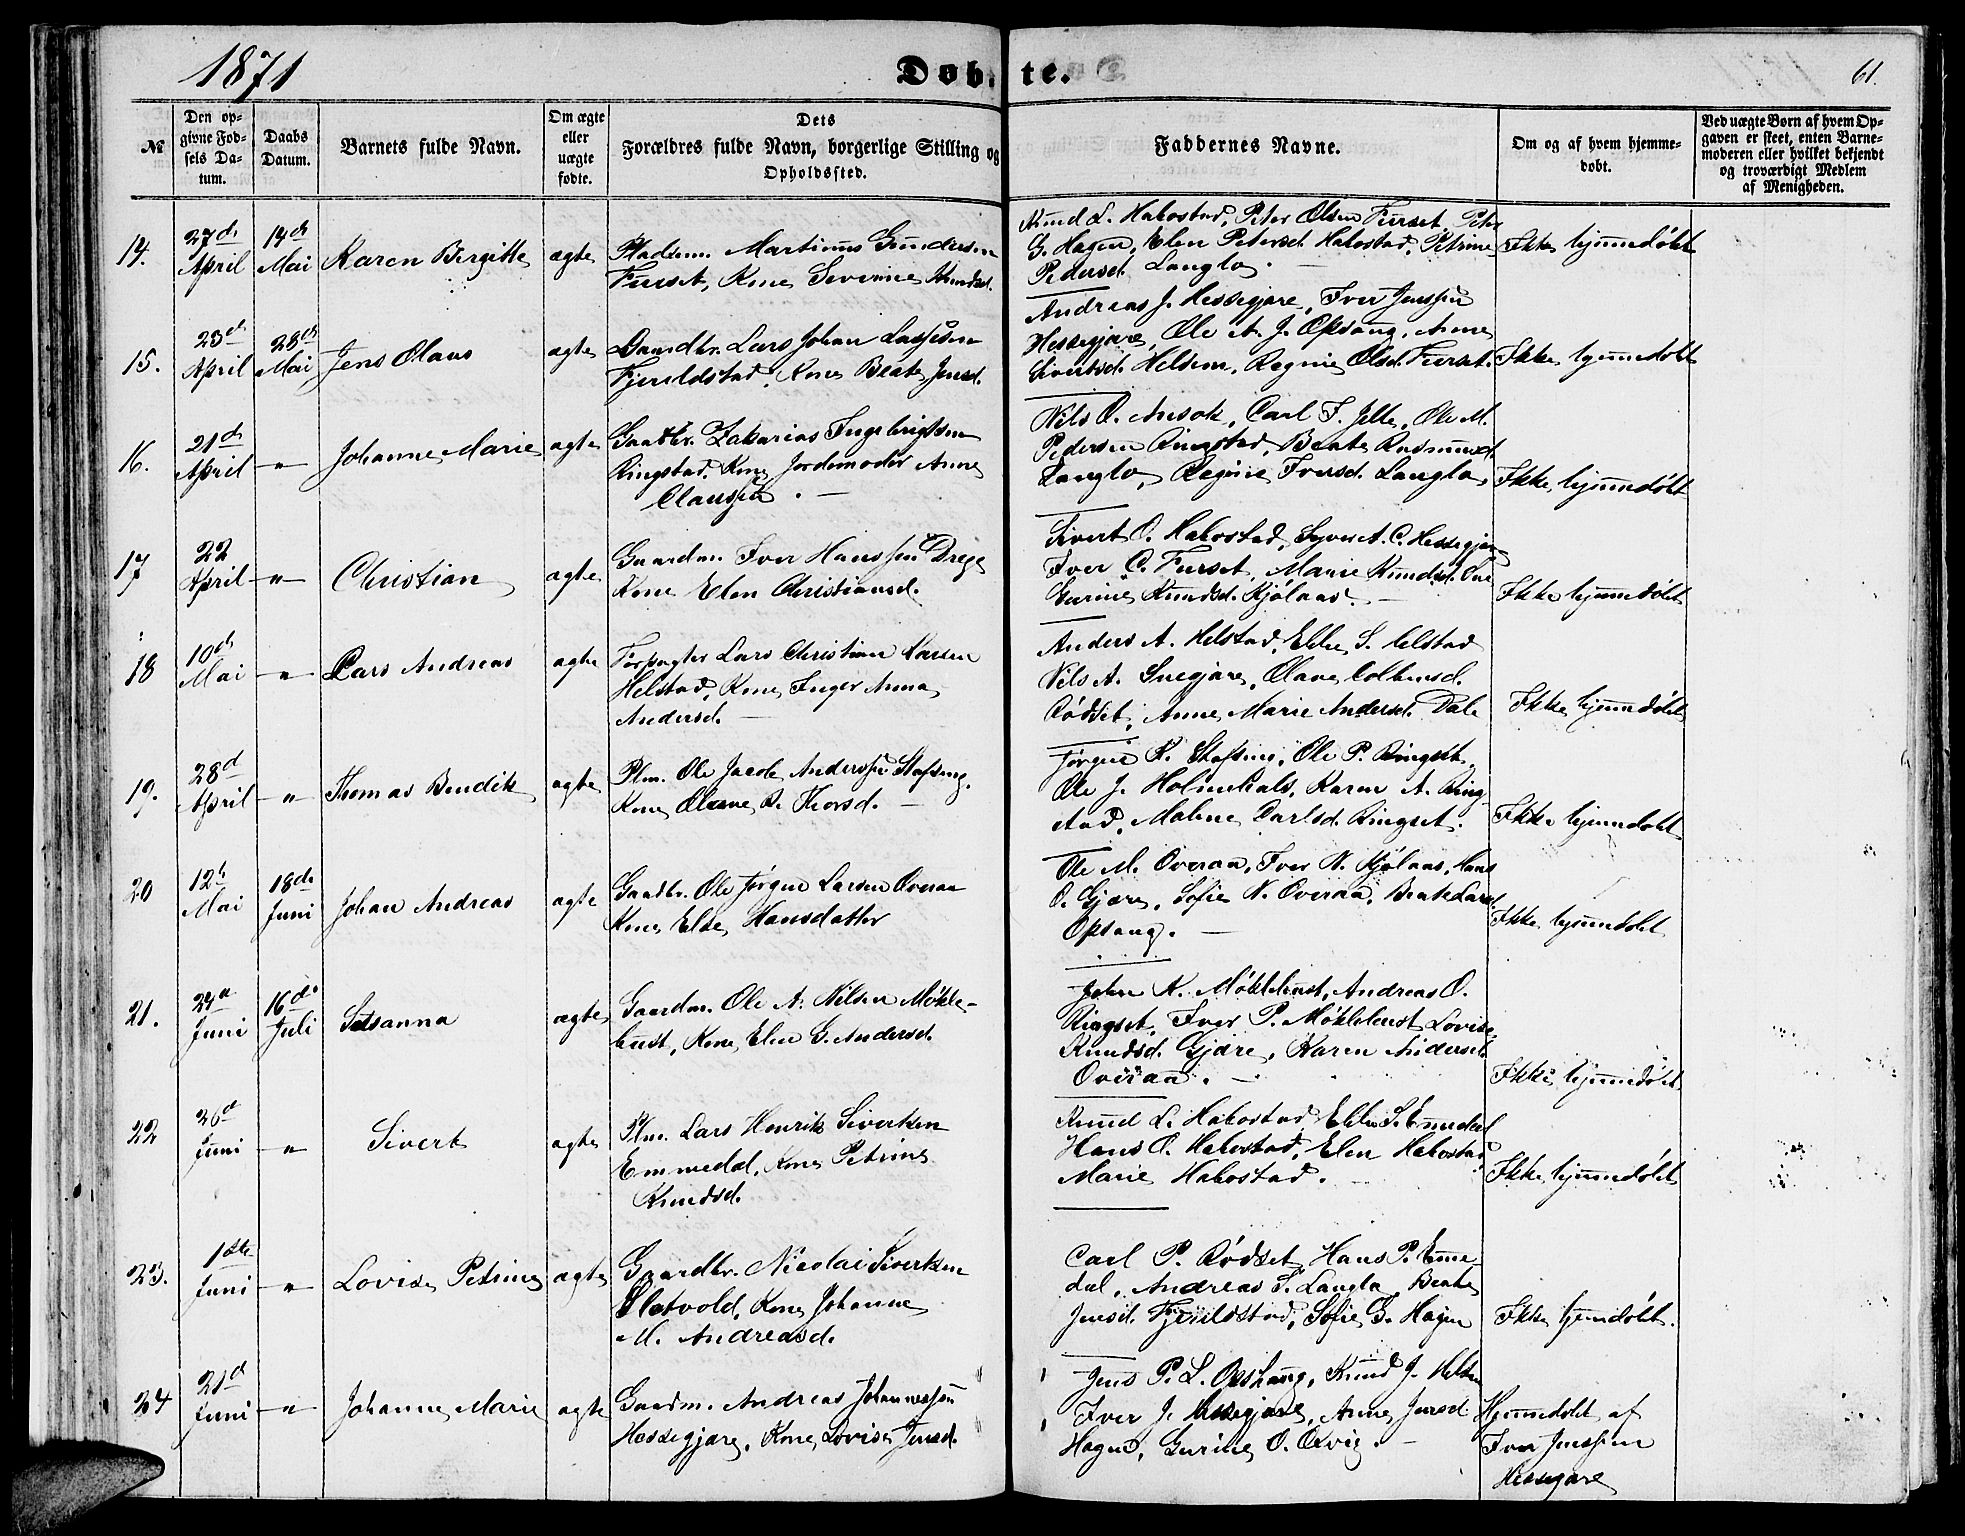 1871
Døbte.
61.
№
Den op-
givne Fød-
sels Da-
tum.
Daabs
Datum.
Barnets fulde Navn.
Om ægte
eller
uægte
fødte.
Dets
Forældres fulde Navn, borgerlige Stilling og
Opholdssted.
Faddernes Navne.
Om og af hvem hjemme-
døbt.
Ved uægte Børn af hvem Op-
gaven er skeet, enten Barne-
moderen eller hvilket bekjendt
og troværdigt Medlem
af Menigheden.
14.
27de
April
14de
Mai
Karen Bergitte
ægte
Pladsm. Martinus Gundersen
Furset, Kone Severine Knudsd.
Knud L. Habostad, Peter Olsen Furset, Peter
G. Hagen, Elen Petersd. Habostad, Petrine
Pedersd. Langlo.
Ikke hjemmedøbt
15.
23d
April
28de
Mai
Jens Olaus
ægte
Gaardbr. Lars Johan Lassesen
Fjeldstad, Kone Beate Jensd.
Andreas J. Hessegjære, Iver Jenssen
Hessegjære, Ole A. J. Opsang, Anne
Sivertsd. Helsem, Regine Olsd. Furset.
Ikke hjemmedøbt
16.
21de
April
"
Johanne Marie
ægte
Gaardbr. Zakarias Ingebrigtsen
Ringstad, Kone Jordemoder Anne
Clausen.
Nils O. Ansok, Carl F. Jelle, Ole M.
Pedersen Ringstad, Beate Rasmusd.
Langlo, Regine Iversd. Langlo,
Ikke hjemmedøbt
17
22
April
"
Christian
ægte
Gaardm. Iver Hanssen Drege
Kone Elen Christiansd.
Sivert O. Habostad, Syver A. C. Hessegjære
Iver C. Furset, Marie Knudsd.
Gurine Knudsd. Kjølaas.
Ikke hjemmedøbt
18
10de
Mai
"
Lars Andreas
ægte
Forpagter Lars Christian Larsen
Helstad, Kone Inger Anna
Andersd.
Anders A. Helstad, Elling S. Helstad
Nils A. Snegjære, Olave Colbensd.
Rødset, Anne Marie Andersd. Dale
Ikke hjemmedøbt
19.
28d
April
"
Thomas Bendik
ægte
Plm. Ole Jacob Anderssen Stafseng.
Kone Oline B. Thorsd.
Jørgen K. Stafseng, Ole P. Ringset,
Ole J. Holmehals, Karen A. Ring-
stad, Malene Carlsd. Ringset.
Ikke hjemmedøbt
20
12te
Mai
18de
Juni
Johan Andreas
ægte
Gaardbr. Ole Jørgen Larsen Overaa
Kone Else Hansdatter
Ole M. Overaa, Iver N. Kjølaas, Hans
O. Gjære, Sofie N. Overaa, Beate Larsd.
Opsang.
Ikke hjemmedøbt
21.
24d
Juni
16de
Juli
Susanna
ægte
Gaardm. Ole A. Nilsen Møkle-
bust, Kone Elen G. Andersd.
John K. Møklebust, Andreas O.
Ringset, Iver P. Møklebust, Lovise
Knudsd. Gjære, Karen Andersd.
Overaa.
Ikke hjemmedøbt
22
26d
Juni
"
Sivert
ægte
Plm. Lars Henrik Sivertsen
Emmedal, Kone Petrine
Knudsd.
Knud L. Habostad, Elling S. Emmedal
Hans O. Habostad, Elen Habostad
Marie Habostad.
Ikke hjemmedøbt
23.
1ste
Juni
"
Lovise Petrine
ægte
Gaardbr. Nicolai Sivertsen
Sletvold, Kone Johanne
M. Andreasd.
Carl P. Rødset, Hans P. Emme-
dal, Andreas S. Langlo, Beate
Jensd. Fjeldstad, Sofie G. Hagen
Ikke hjemdøbt.
24
21d
Juni
"
Johanne Marie
ægte
Gaardm. Andreas Johannessen
Hessegjære, Kone Lovise Jensd.
Jens P. L. Opshaug, Knud J. Helsem
Iver J. Hessegjære, Anne Jensd.
Hagen, Gurine O. Ørvig.
Hjemmedøbt af
Iver Jenssen
Hessegjære